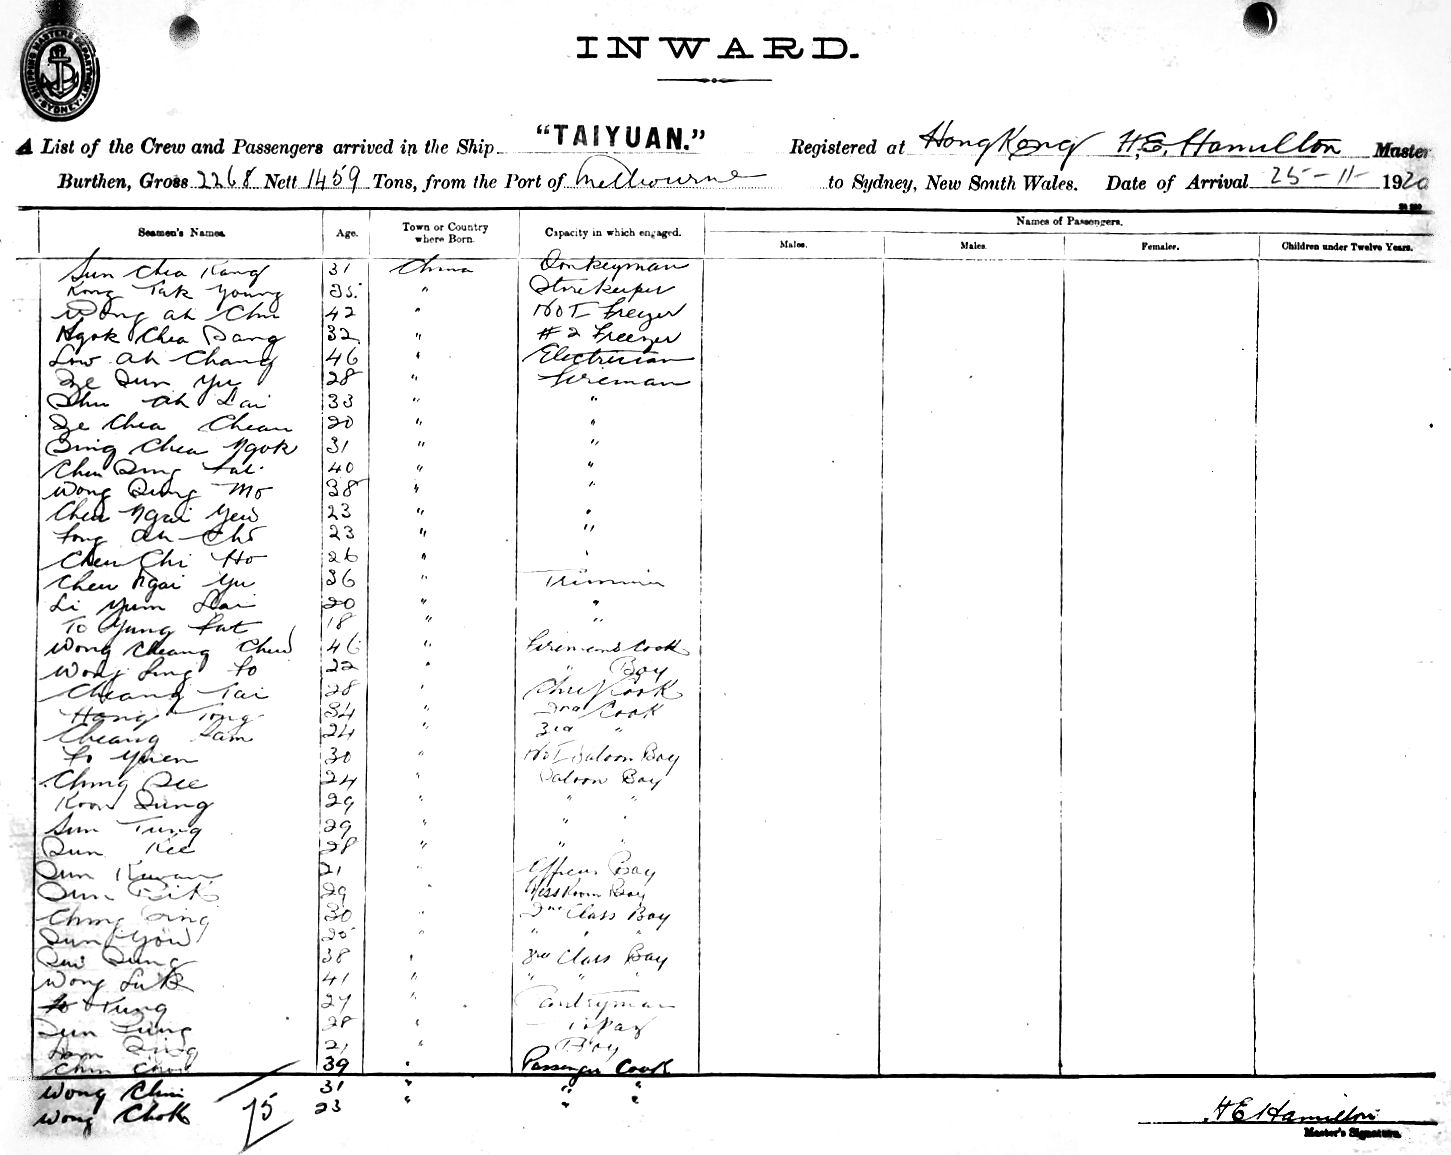 SHIPPING MASTERS DEPARTMENT SYDNEY
INWARD.
A List of the Crew and Passengers arrived in the Ship "TAIYUAN." Registered at Hong Kong H.E. Hamilton Master
Burthen, Gross 2268 Nett 1459 Tons, from the Port of Melbourne to Sydney, New South Wales. Date of Arrival 25-11-1920
Names of Passengers.
Seamen's Names. Age. Town or Country where Born. Capacity in which engaged. Males. Males. Females. Children under Twelve Years.
Sun Chea Kang 31 China Donkeyman
Kong Tak Young 35 " Storekeeper
Wong Ah Chu 42 " No 1 Freezer
Ngok Chea Pang 32 " # 2 Freezer
Low Ah Chang 46 " Electrician
Ze Sun Yu 28 " Fireman
Shu Ah Lai 33 " "
Ze Chea Chean 20 " "
Sing Chea Ngok 31 " "
Chen Sing Fai 40 " "
Wong Sung Mo 38 " "
Chen Ngai Yew 23 " "
Fong Ah Cho 23 " "
Chen Chi Ho 26 " "
Chen Ngai Yu 36 " Trimmer
Li Yum Lai 20 " "
To Yung Fat 18 " "
Wong Cheang Chew 46 " Firemens Cook
Wong Sing Fo 22 " " Boy
Cheang Tai 28 " Chief Cook
Hang Tong 34 " 2nd Cook
Cheang Sam 24 " 3rd "
Fo Yuen 30 " No 1 Saloon Boy
Ching See 24 " Saloon Boy
Koon Sung 29 " " "
Sun Tung 29 " " "
Sun Kee 28 " " "
Sun Kuwan 21 " Officers Boy
Sun Bik 29 " Messroom Boy
Ching Sing 30 " 2nd Class Boy
Sun You 25 " " " "
Sui Sung 38 " 3rd Class Boy
Wong Luk 41 " " " "
Fo Tung 27 " Pantryman
Sun Fung 28 " Topaz
Lam Sing 21 " Boy
Chin Choi 39 " Passenger Cook
Wong Chui 31 " " "
Wong Chok 23 " " "
75
H E Hamilton
Master's Signature.